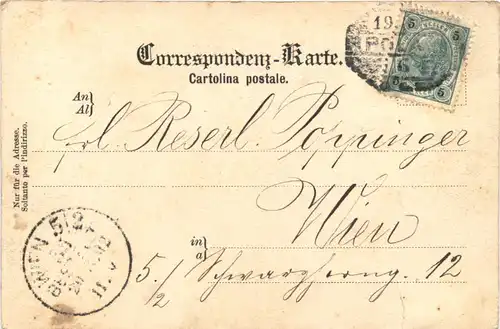 Correspondenz-Karte.
Cartolina postale.
19
POL
5 5
5 5
An
Al
Frl. Reserl Poppinger
Wien
in
a
5./2 Schwarzhorng. 12
Nur für die Adresse.
Soltanto per l'indirizzo.
WIEN 5/2